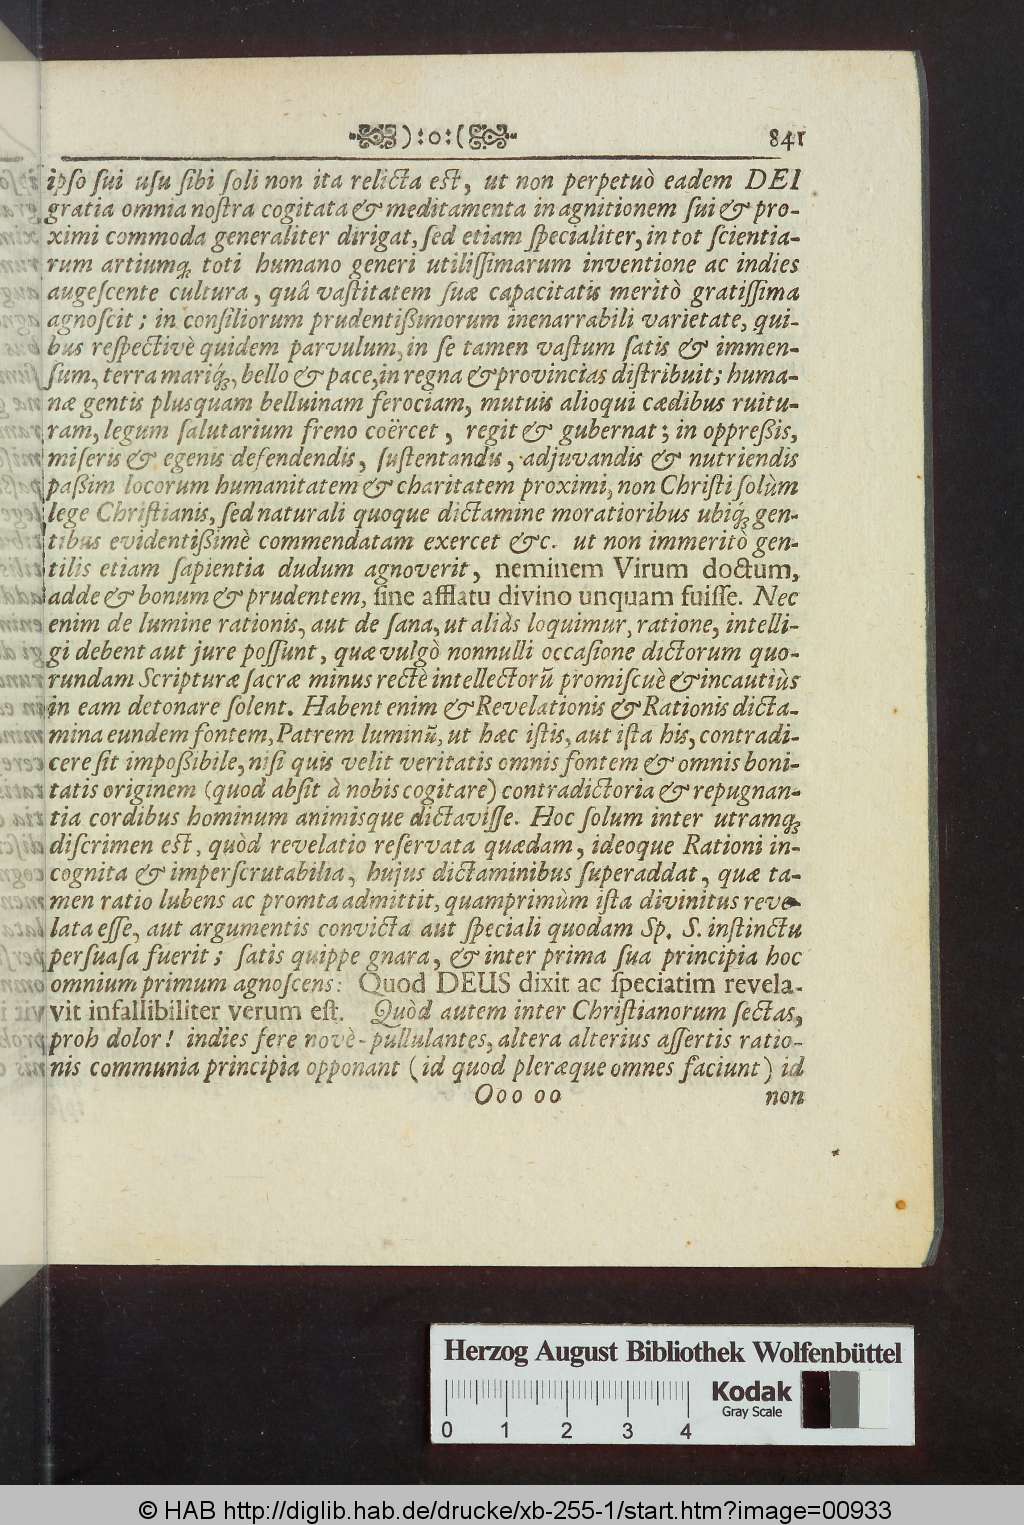 ):o:( 841
ipſo ſui uſu ſibi ſoli non ita relicta eſt, ut non perpetuò eadem DEI
gratia omnia noſtra cogitata & meditamenta in agnitionem ſui & pro-
ximi commoda generaliter dirigat, ſed etiam ſpecialiter, in tot ſcientia-
rum artiumq́; toti humano generi utiliſſimarum inventione ac indies
augeſcente cultura, quâ vaſtitatem ſuæ capacitatis meritò gratiſſima
agnoſcit; in conſiliorum prudentißimorum inenarrabili varietate, qui-
bus reſpectivè quidem parvulum, in ſe tamen vaſtum ſatis & immen-
ſum, terra mariq́;, bello & pace, in regna & provincias diſtribuit; huma-
næ gentis plusquam belluinam ferociam, mutuis alioqui cædibus ruitu-
ram, legum ſalutarium freno coërcet, regit & gubernat; in oppreßis,
miſeris & egenis defendendis, ſuſtentandis, adjuvandis & nutriendis
paßim locorum humanitatem & charitatem proximi, non Chriſti ſolùm
lege Chriſtianis, ſed naturali quoque dictamine moratioribus ubiq́; gen-
tibus evidentißimè commendatam exercet &c. ut non immeritò gen-
tilis etiam ſapientia dudum agnoverit, neminem Virum doctum,
adde & bonum & prudentem, ſine afflatu divino unquam fuiſſe. Nec
enim de lumine rationis, aut de ſana, ut aliàs loquimur, ratione, intelli-
gi debent aut jure poſſunt, quæ vulgò nonnulli occaſione dictorum quo-
rundam Scripturæ ſacræ minus rectè intellectorũ promiſcuè & incautiùs
in eam detonare ſolent. Habent enim & Revelationis & Rationis dicta-
mina eundem fontem, Patrem luminũ, ut hæc iſtis, aut iſta his, contradi-
cere ſit impoßibile, niſi quis velit veritatis omnis fontem & omnis boni-
tatis originem (quod abſit à nobis cogitare) contradictoria & repugnan-
tia cordibus hominum animisque dictaviſſe. Hoc ſolum inter utramq́;
diſcrimen eſt, quòd revelatio reſervata quædam, ideoque Rationi in-
cognita & imperſcrutabilia, hujus dictaminibus ſuperaddat, quæ ta-
men ratio lubens ac promta admittit, quamprimùm iſta divinitus reve-
lata eſſe, aut argumentis convicta aut ſpeciali quodam Sp. S. inſtinctu
perſuaſa fuerit; ſatis quippe gnara, & inter prima ſua principia hoc
omnium primum agnoſcens: Quod DEUS dixit ac ſpeciatim revela-
vit infallibiliter verum eſt. Quòd autem inter Chriſtianorum ſectas,
proh dolor! indies fere novè-pullulantes, altera alterius aſſertis ratio-
nis communia principia opponant (id quod pleræque omnes faciunt) id
Ooo oo non
Herzog August Bibliothek Wolfenbüttel
Kodak
Gray Scale
0 1 2 3 4
© HAB http://diglib.hab.de/drucke/xb-255-1/start.htm?image=00933